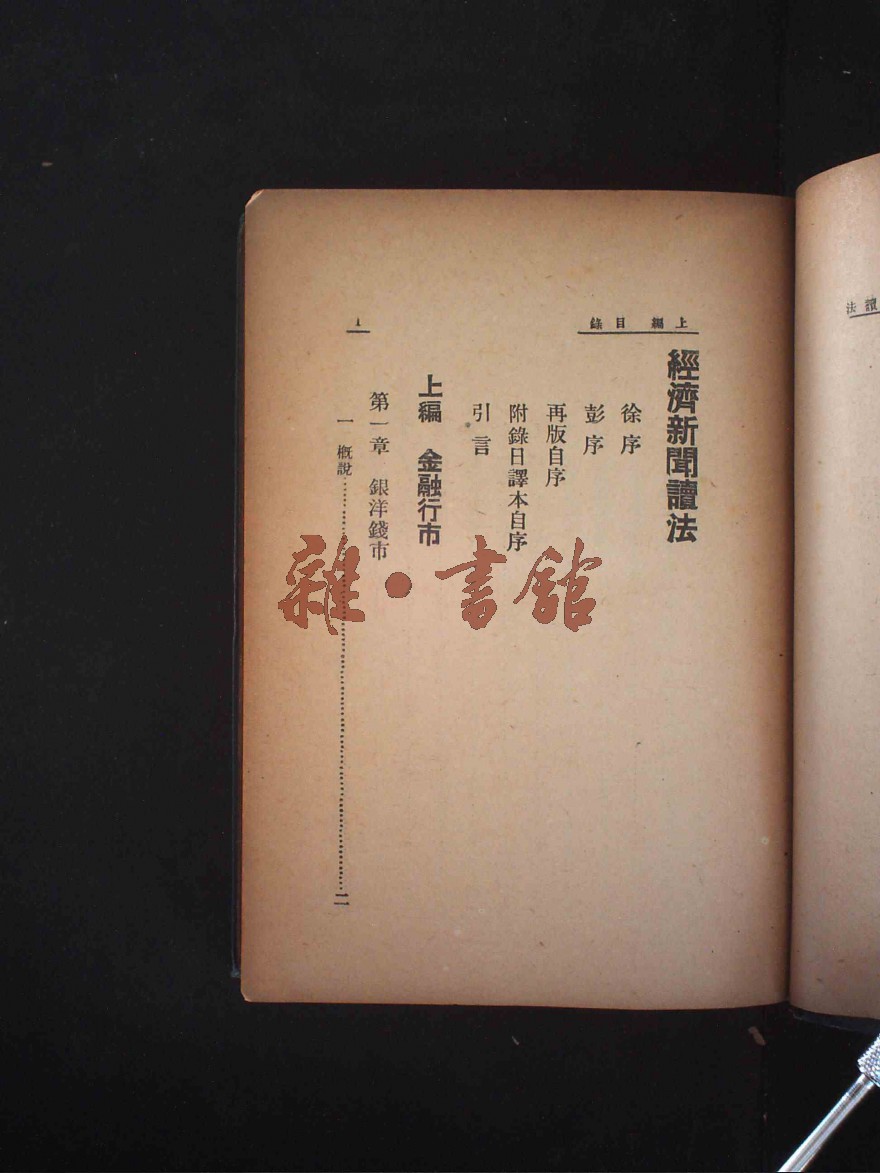 上編目錄
經濟新聞讀法
徐序
彭序
再版自序
附錄日譯本自序
引言
上編 金融行市
第一章 銀洋錢市
一 概說……二
1
雜·書館
讀法